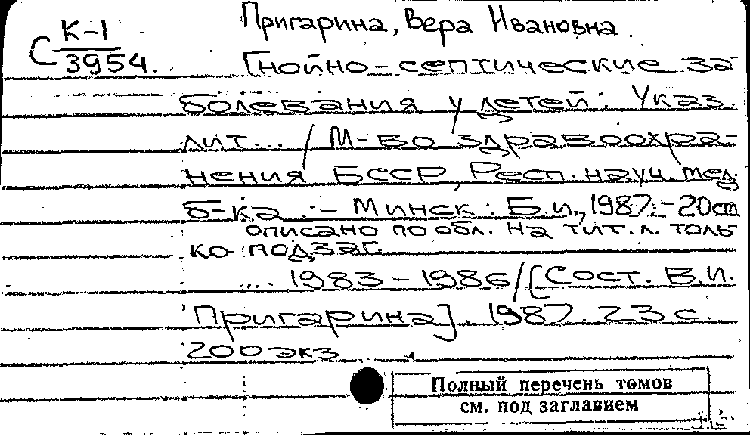 Пригарина, Вера Ивановна
С К-1
3954.
Гнойно-септические за
болевания у детей: Указ.
лит... / М-во здравоохра-
нения БССР, Респ. науч. мед.
б-ка. - Минск: Б.и., 1987. - 20 см
описано по обл. На тит. л. толь
ко подзаг.
... 1983 - 1986 / [Сост. В.И.
Пригарина]. 1987. 23 с.
200 экз
Полный перечень томов
см. под заглавием